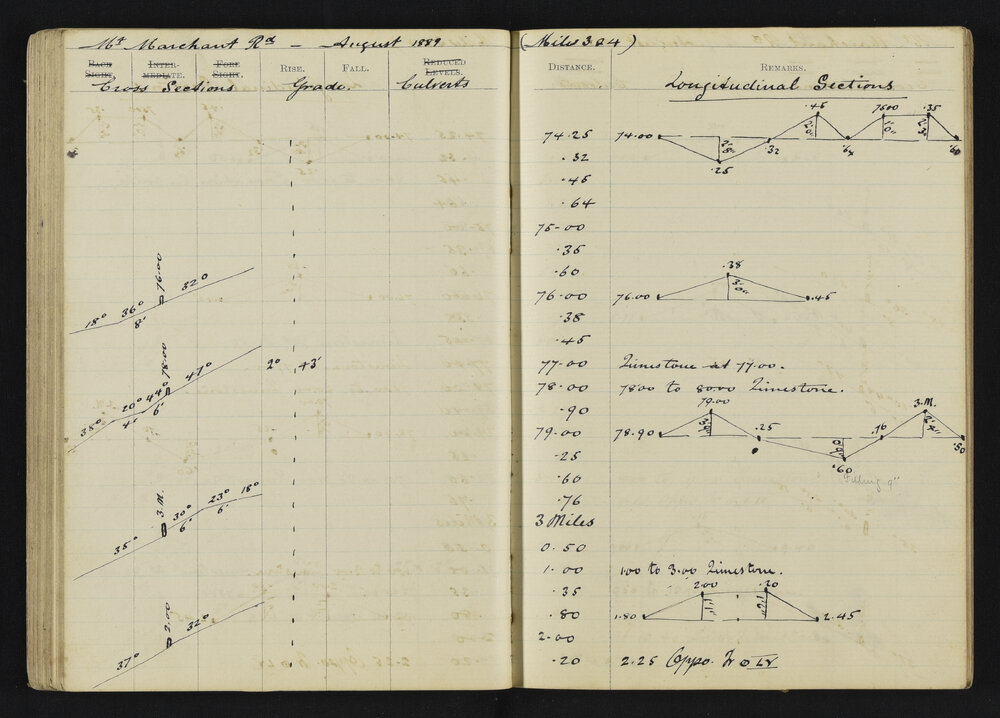 Mt Marchant Rd — August 1889
BACK SIGHT. INTER-MEDIATE. FORE SIGHT. RISE. FALL. REDUCED LEVELS.
Cross Sections Grade. Culverts
18° 36° 76.00 32°
8'
38° 20° 44° 78.00 47°
4' 6'
2° 43'
35° 3.M. 30° 23° 18°
6' 6'
37° 2.00 32°
(Miles 3 & 4)
DISTANCE. REMARKS.
Longitudinal Sections
.45 7500 .35
74.25 74.00 .32 .64 .60
.25
.32
.45
.64
75.00
.35
.60 .38
76.00 76.00 3'0" .45
.38
.45
77.00 Limestone at 77.00.
78.00 7800 to 8000 Limestone.
.90 79.00 3.M.
79.00 78.90 .25 .76 .50
.25 .60
.60 Filling 9"
.76
3 Miles
0.50
1.00 100 to 3.00 Limestone.
.35 2.00 .20
.80 1.80 2.45
2.00
.20 2.25 Oppo.